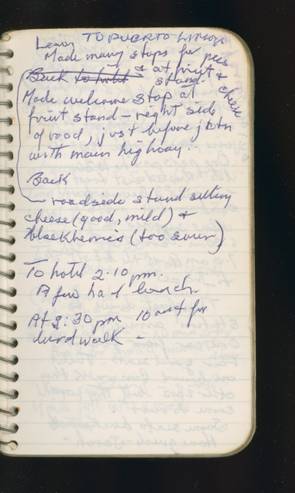 Leave TO PUERTO LIMON
Made many stops for pees
Back to hotel & at fruit &
stand cheese
Made welcome stop at
fruit stand - right side
of road, just before jctn
with main highway.
Back
roadside stand selling
cheese (good, mild) &
blackberries (too sour)
To hotel 2.10 pm.
A few had lunch
At 3:30 pm 10 met for
birdwalk -